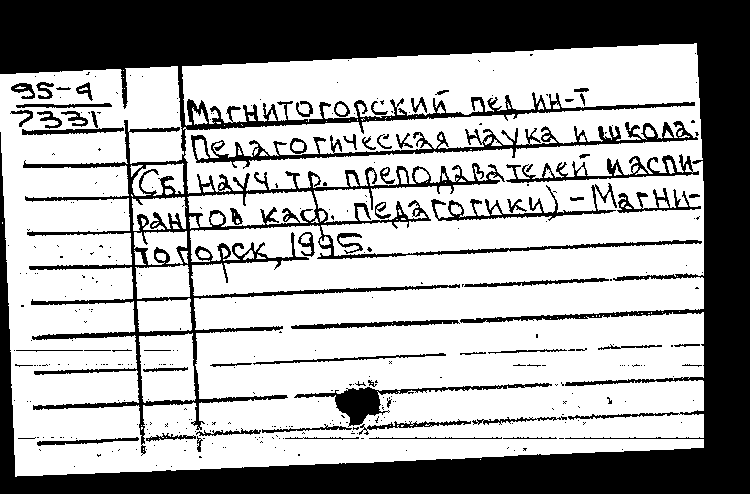 95-4
7331
Магнитогорский пед ин-т
Педагогическая наука и школа:
(Сб. науч. тр. преподавателей и аспи-
рантов каф. педагогики) - Магни-
тогорск, 1995.